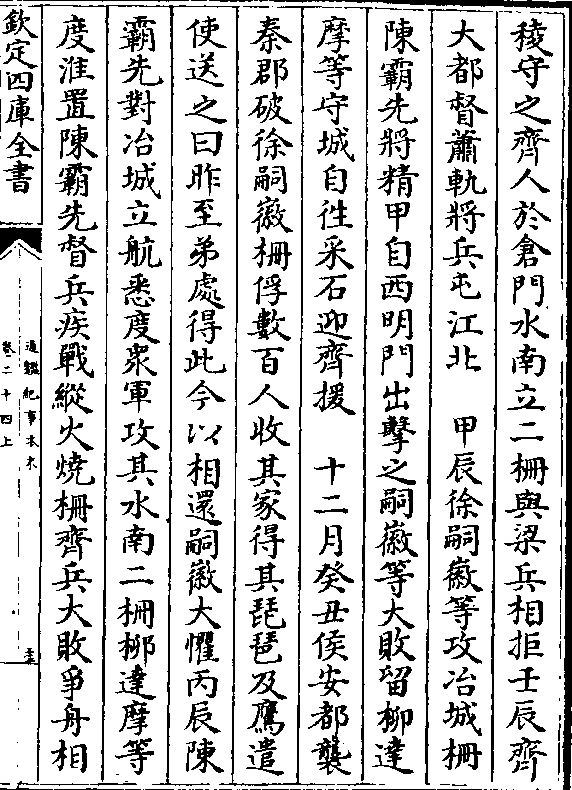 稜守之齊人於倉門水南立二柵與梁兵相拒壬辰齊
大都督蕭軌將兵屯江北　甲辰徐嗣徽等攻冶城柵
陳霸先將精甲自西明門出擊之嗣徽等大敗留柳達
摩等守城自徃采石迎齊援　十二月癸丑侯安都襲
秦郡破徐嗣徽柵俘數百人收其家得其琵琶及鷹遣
使送之曰昨至弟處得此今以相還嗣徽大懼丙辰陳
霸先對冶城立航悉度衆軍攻其水南二柵柳達摩等
度淮置陳霸先督兵疾戰縱火燒柵齊兵大敗爭舟相
欽定四庫全書
通鑑紀事本末
卷二十四上